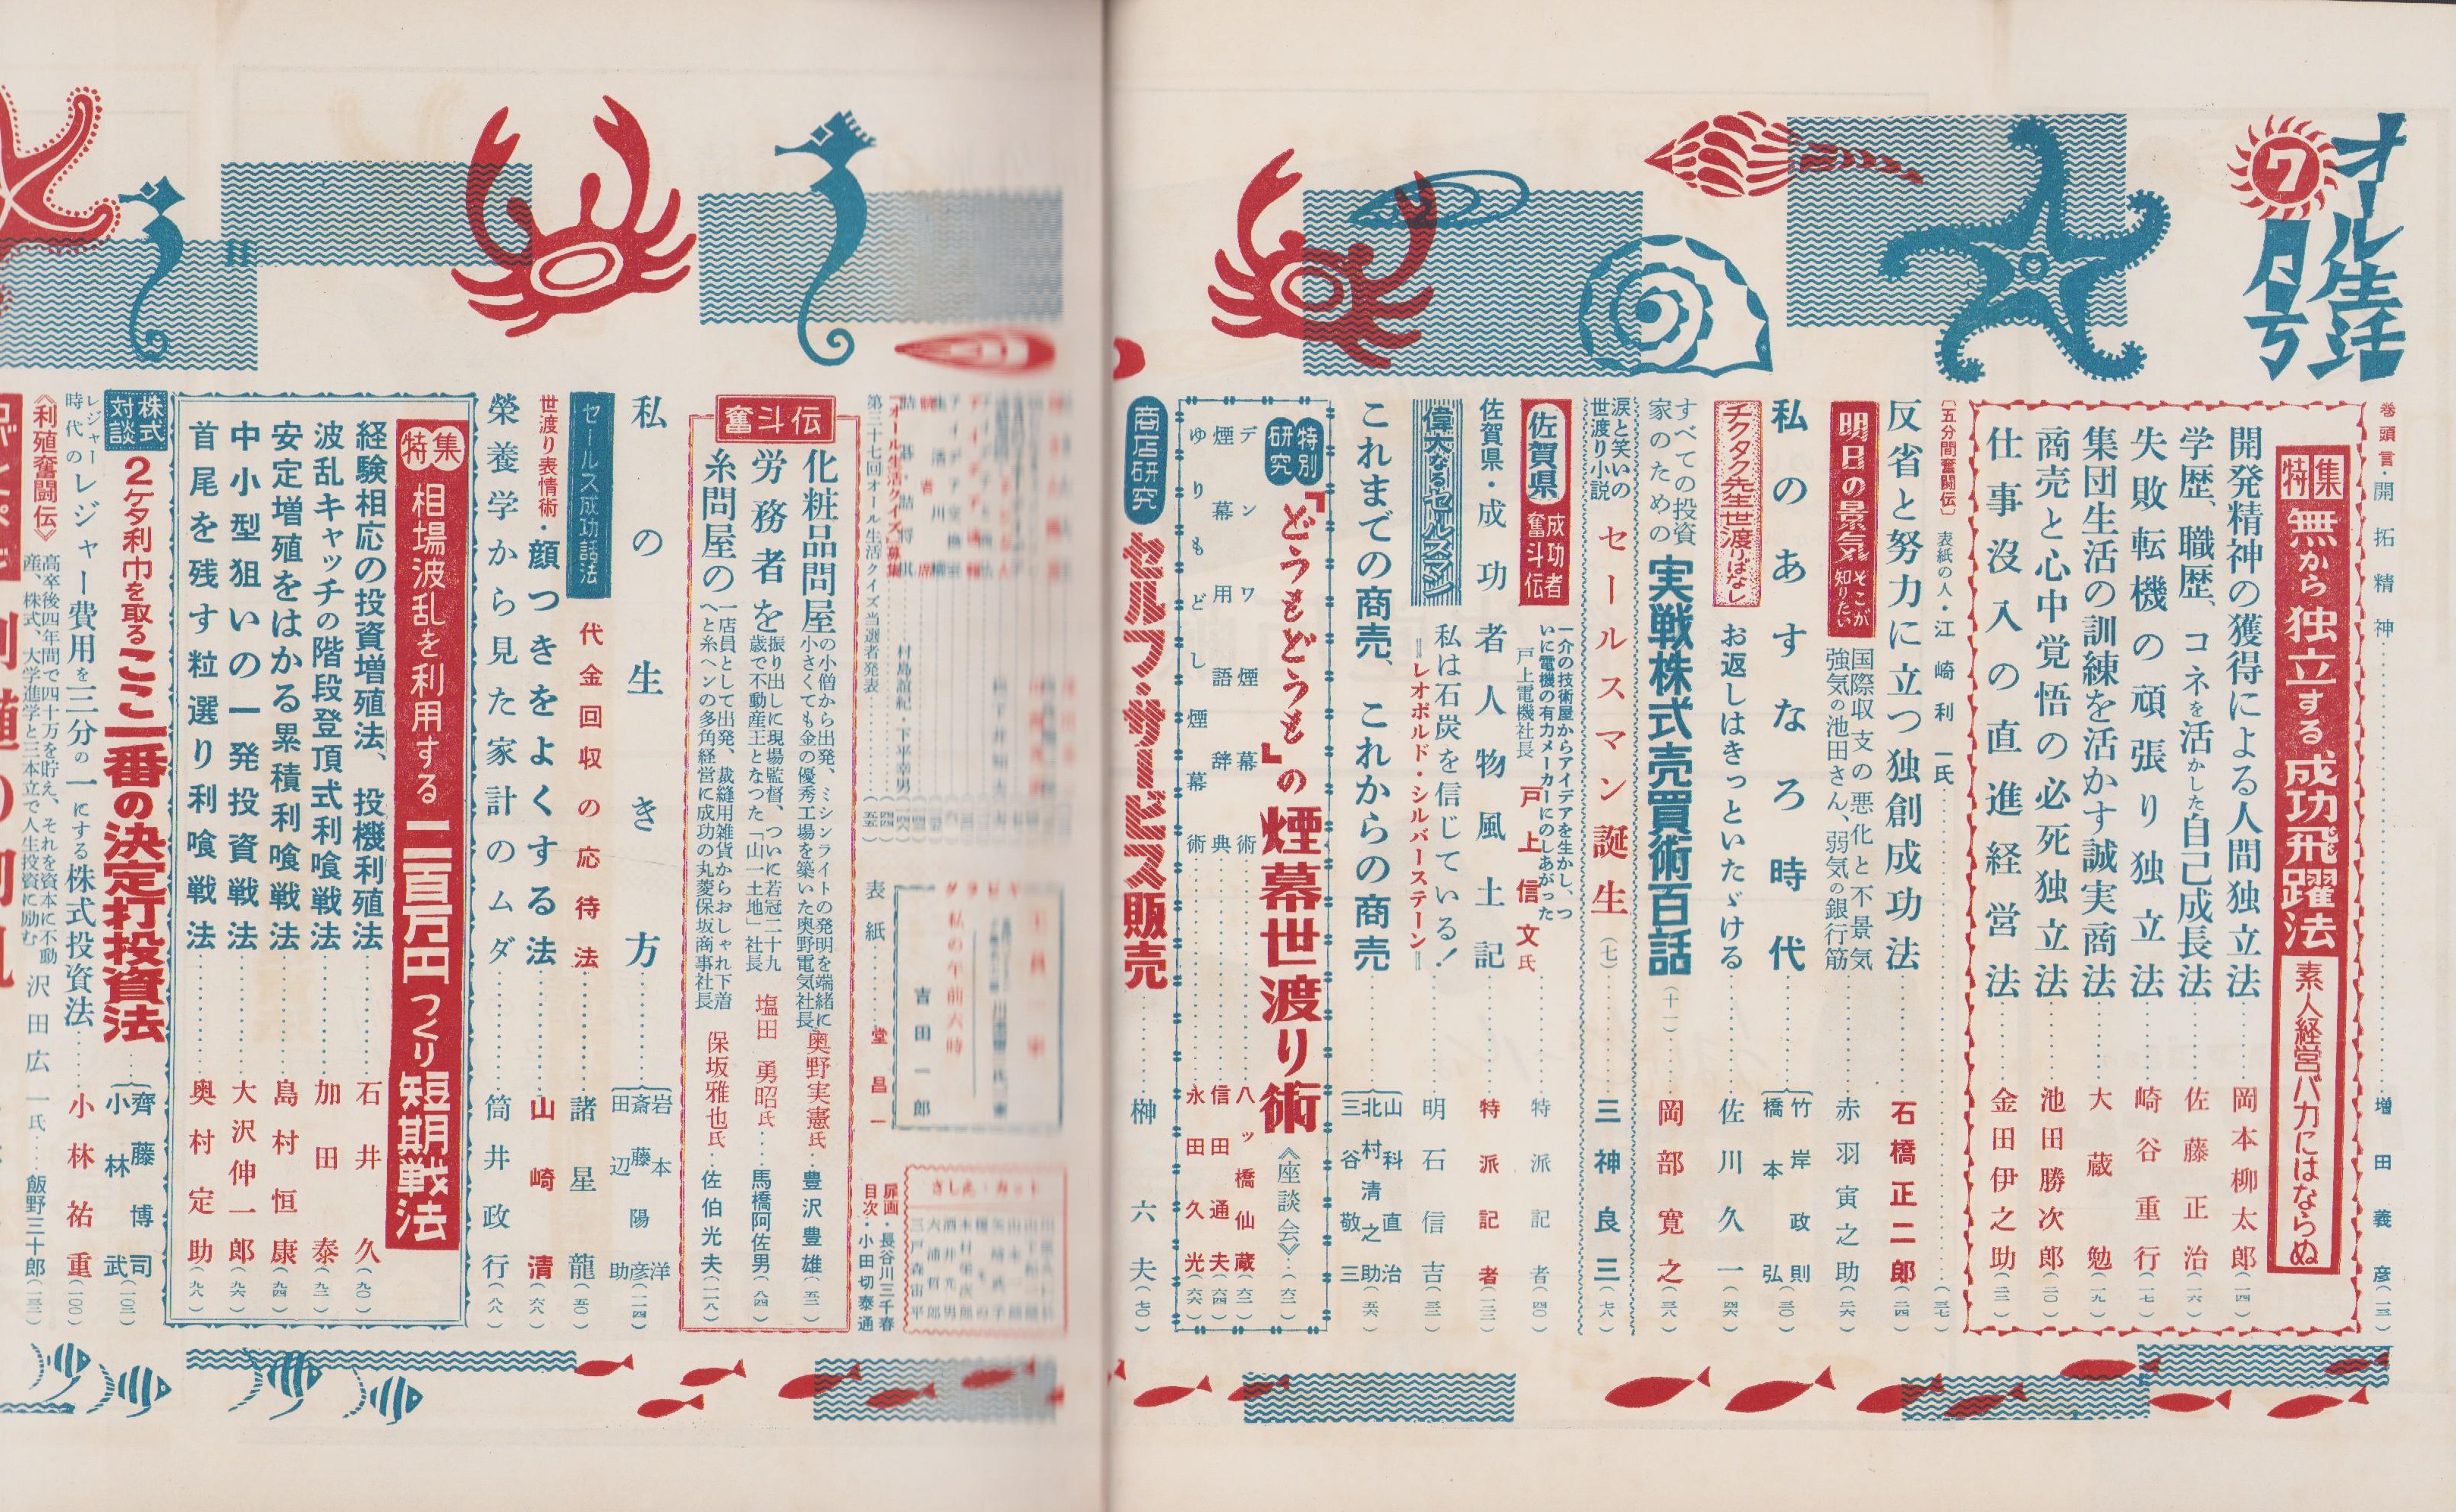 オール生活
7月号
巻頭言・開拓精神 増田義彦(一三)
特集 無から独立する成功飛躍法
素人経営バカにはならぬ
開発精神の獲得による人間独立法 岡本柳太郎(一四)
学歴、職歴、コネを活かした自己成長法 佐藤正治(一六)
失敗転機の頑張り独立法 崎谷重行(一七)
集団生活の訓練を活かす誠実商法 大蔵勉(一九)
商売と心中覚悟の必死独立法 池田勝次郎(二〇)
仕事没入の直進経営法 金田伊之助(二二)
〔五分間奮闘伝〕 表紙の人・江崎利一氏(三七)
反省と努力に立つ独創成功法 石橋正二郎(二四)
明日の景気 そこが知りたい
国際収支の悪化と不景気
強気の池田さん、弱気の銀行筋 赤羽寅之助(二六)
私のあすなろ時代 竹岸政則 橋本弘(三〇)
チクタク先生世渡りばなし
お返しはきっといたゞける 佐川久一(四六)
すべての投資家のための 実戦株式売買術百話(十一) 岡部寛之(三八)
涙と笑いの世渡り小説 セールスマン誕生(七) 三神良三(七八)
佐賀県 成功者奮斗伝
一介の技術屋からアイデアを生かし、ついに電機の有力メーカーにのしあがった
戸上電機社長 戸上信文氏 特派記者(四〇)
佐賀県・成功者人物風土記 特派記者(一二二)
偉大なるセールスマン
私は石炭を信じている!
=レオポルド・シルバーステーン= 明石信吉(三二)
これまでの商売、これからの商売 山科直治 北村清之助 三谷敬三(五六)
特別研究 『どうもどうも』の煙幕世渡り術《座談会》(六二)
デンワ煙幕術 八ッ橋仙蔵(六二)
煙幕用語辞典 信田通夫(六四)
ゆりもどし煙幕術 永田久光(六六)
商店研究 セルフ・サービス販売 榊六夫(七〇)
さしえ・カット
三戸森宙平
大浦哲郎
酒井光男
グラビヤ
私の午前六時
吉田一郎
扉画・長谷川三千春
目次・小田切泰通
表紙 堂昌一
『オール生活クイズ』募集
第三十七回オール生活クイズ当選者発表(五五)
詰碁・詰将棋 村島誼紀・下平幸男(一四六)
奮斗伝
化粧品問屋の小僧から出発、ミシンライトの発明を端緒に
小さくても金の優秀工場を築いた奥野電気社長 奥野実憲氏 豊沢豊雄(五二)
労務者を振り出しに現場監督、ついに若冠二十九
歳で不動産王となつた「山一土地」社長 塩田勇昭氏 馬橋阿佐男(八四)
糸問屋の一店員として出発、裁縫用雑貨からおしゃれ下着
へと糸ヘンの多角経営に成功の丸菱保坂商事社長 保坂雅也氏 佐伯光夫(一二八)
私の生き方 岩本洋 斎藤陽彦 田辺助(一二四)
セールス成功話法
代金回収の応待法 諸星龍(五〇)
世渡り表情術・顔つきをよくする法 山崎清(六八)
榮養学から見た家計のムダ 筒井政行(八八)
特集 相場波乱を利用する 二百万円つくり 短期戦法
経験相応の投資増殖法、投機利殖法 石井久(九〇)
波乱キャッチの階段登頂式利喰戦法 加田泰(九二)
安定増殖をはかる累積利喰戦法 島村恒康(九四)
中小型狙いの一発投資戦法 大沢伸一郎(九六)
首尾を残す粒選り利喰戦法 奥村定助(九八)
株式対談 2ケタ利巾を取るここ一番の決定打投資法 齊藤博司 小林武(一〇二)
レジャー時代のレジャー費用を三分の一にする株式投資法 小林祐重(一〇〇)
《利殖奮闘伝》
高卒後四年間で四十万を貯え、それを資本に不動
産、株式、大学進学と三本立で人生投資に励む 沢田広一氏 飯野三十郎(一三二)